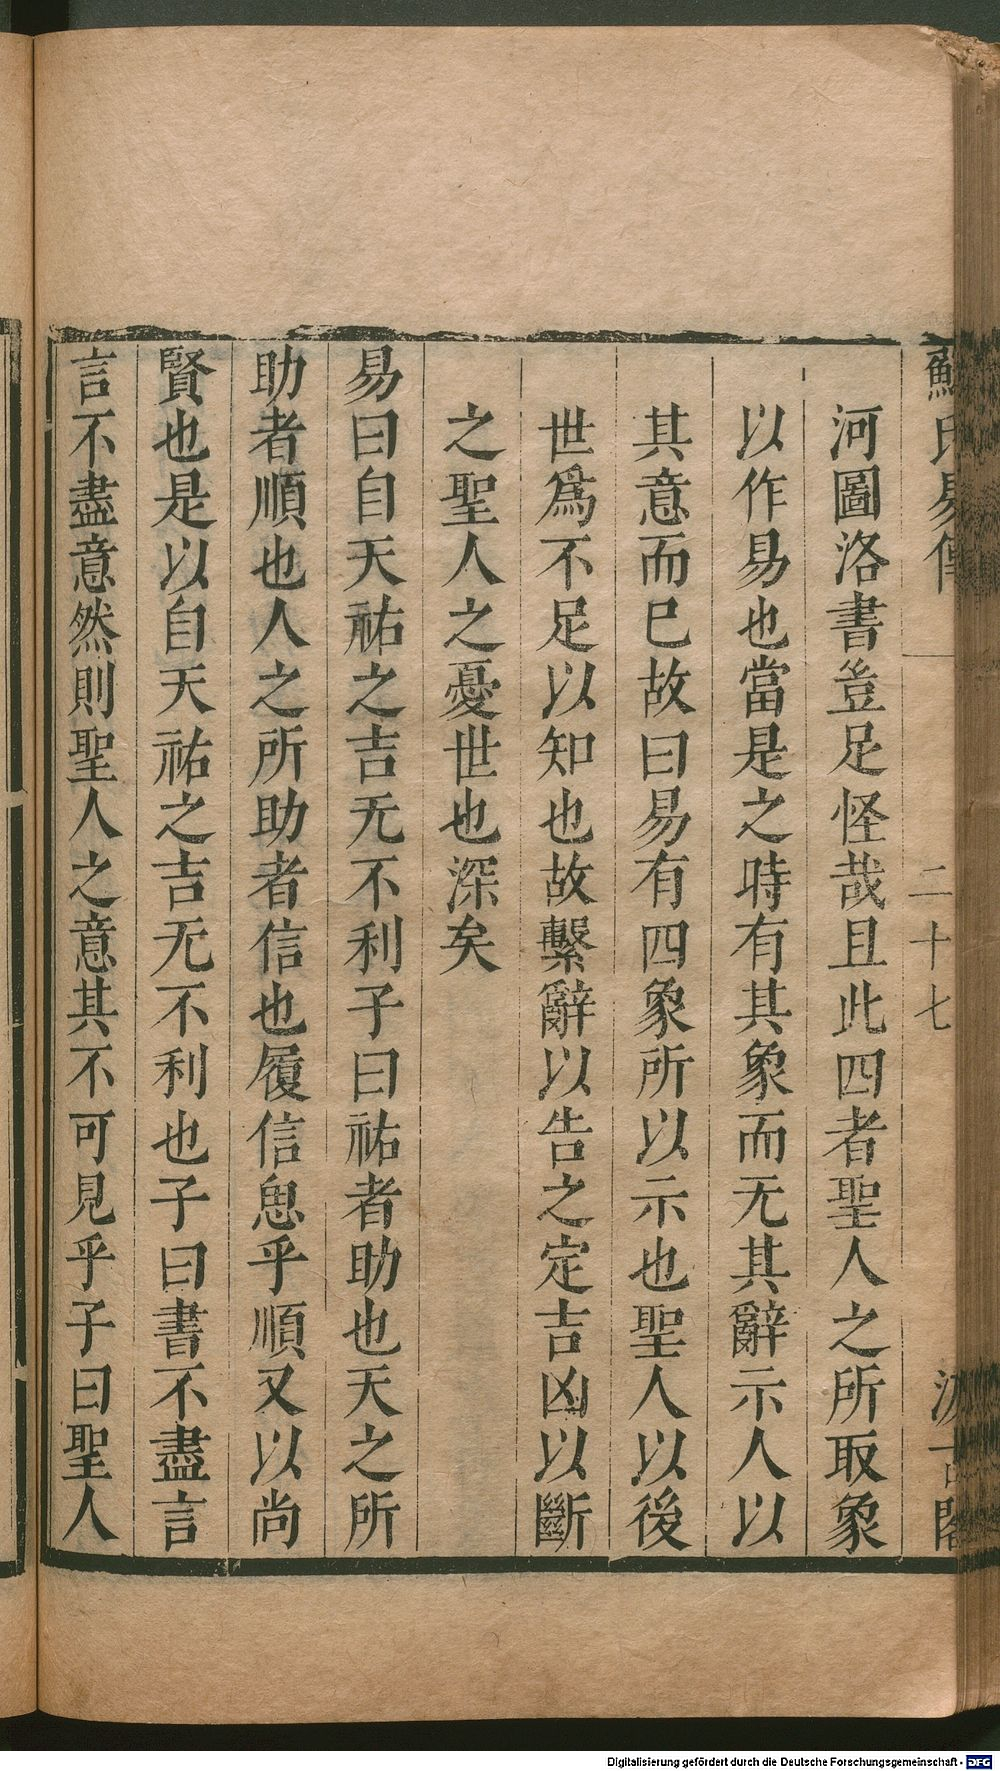 蘇氏易傳 二十七 汲古閣
河圖洛書豈足怪哉且此四者聖人之所取象
以作易也當是之時有其象而无其辭示人以
其意而巳故曰易有四象所以示也聖人以後
世爲不足以知也故繫辭以告之定吉凶以斷
之聖人之憂世也深矣
易曰自天祐之吉无不利子曰祐者助也天之所
助者順也人之所助者信也履信思乎順又以尚
賢也是以自天祐之吉无不利也子曰書不盡言
言不盡意然則聖人之意其不可見乎子曰聖人
Digitalisierung gefördert durch die Deutsche Forschungsgemeinschaft - DFG